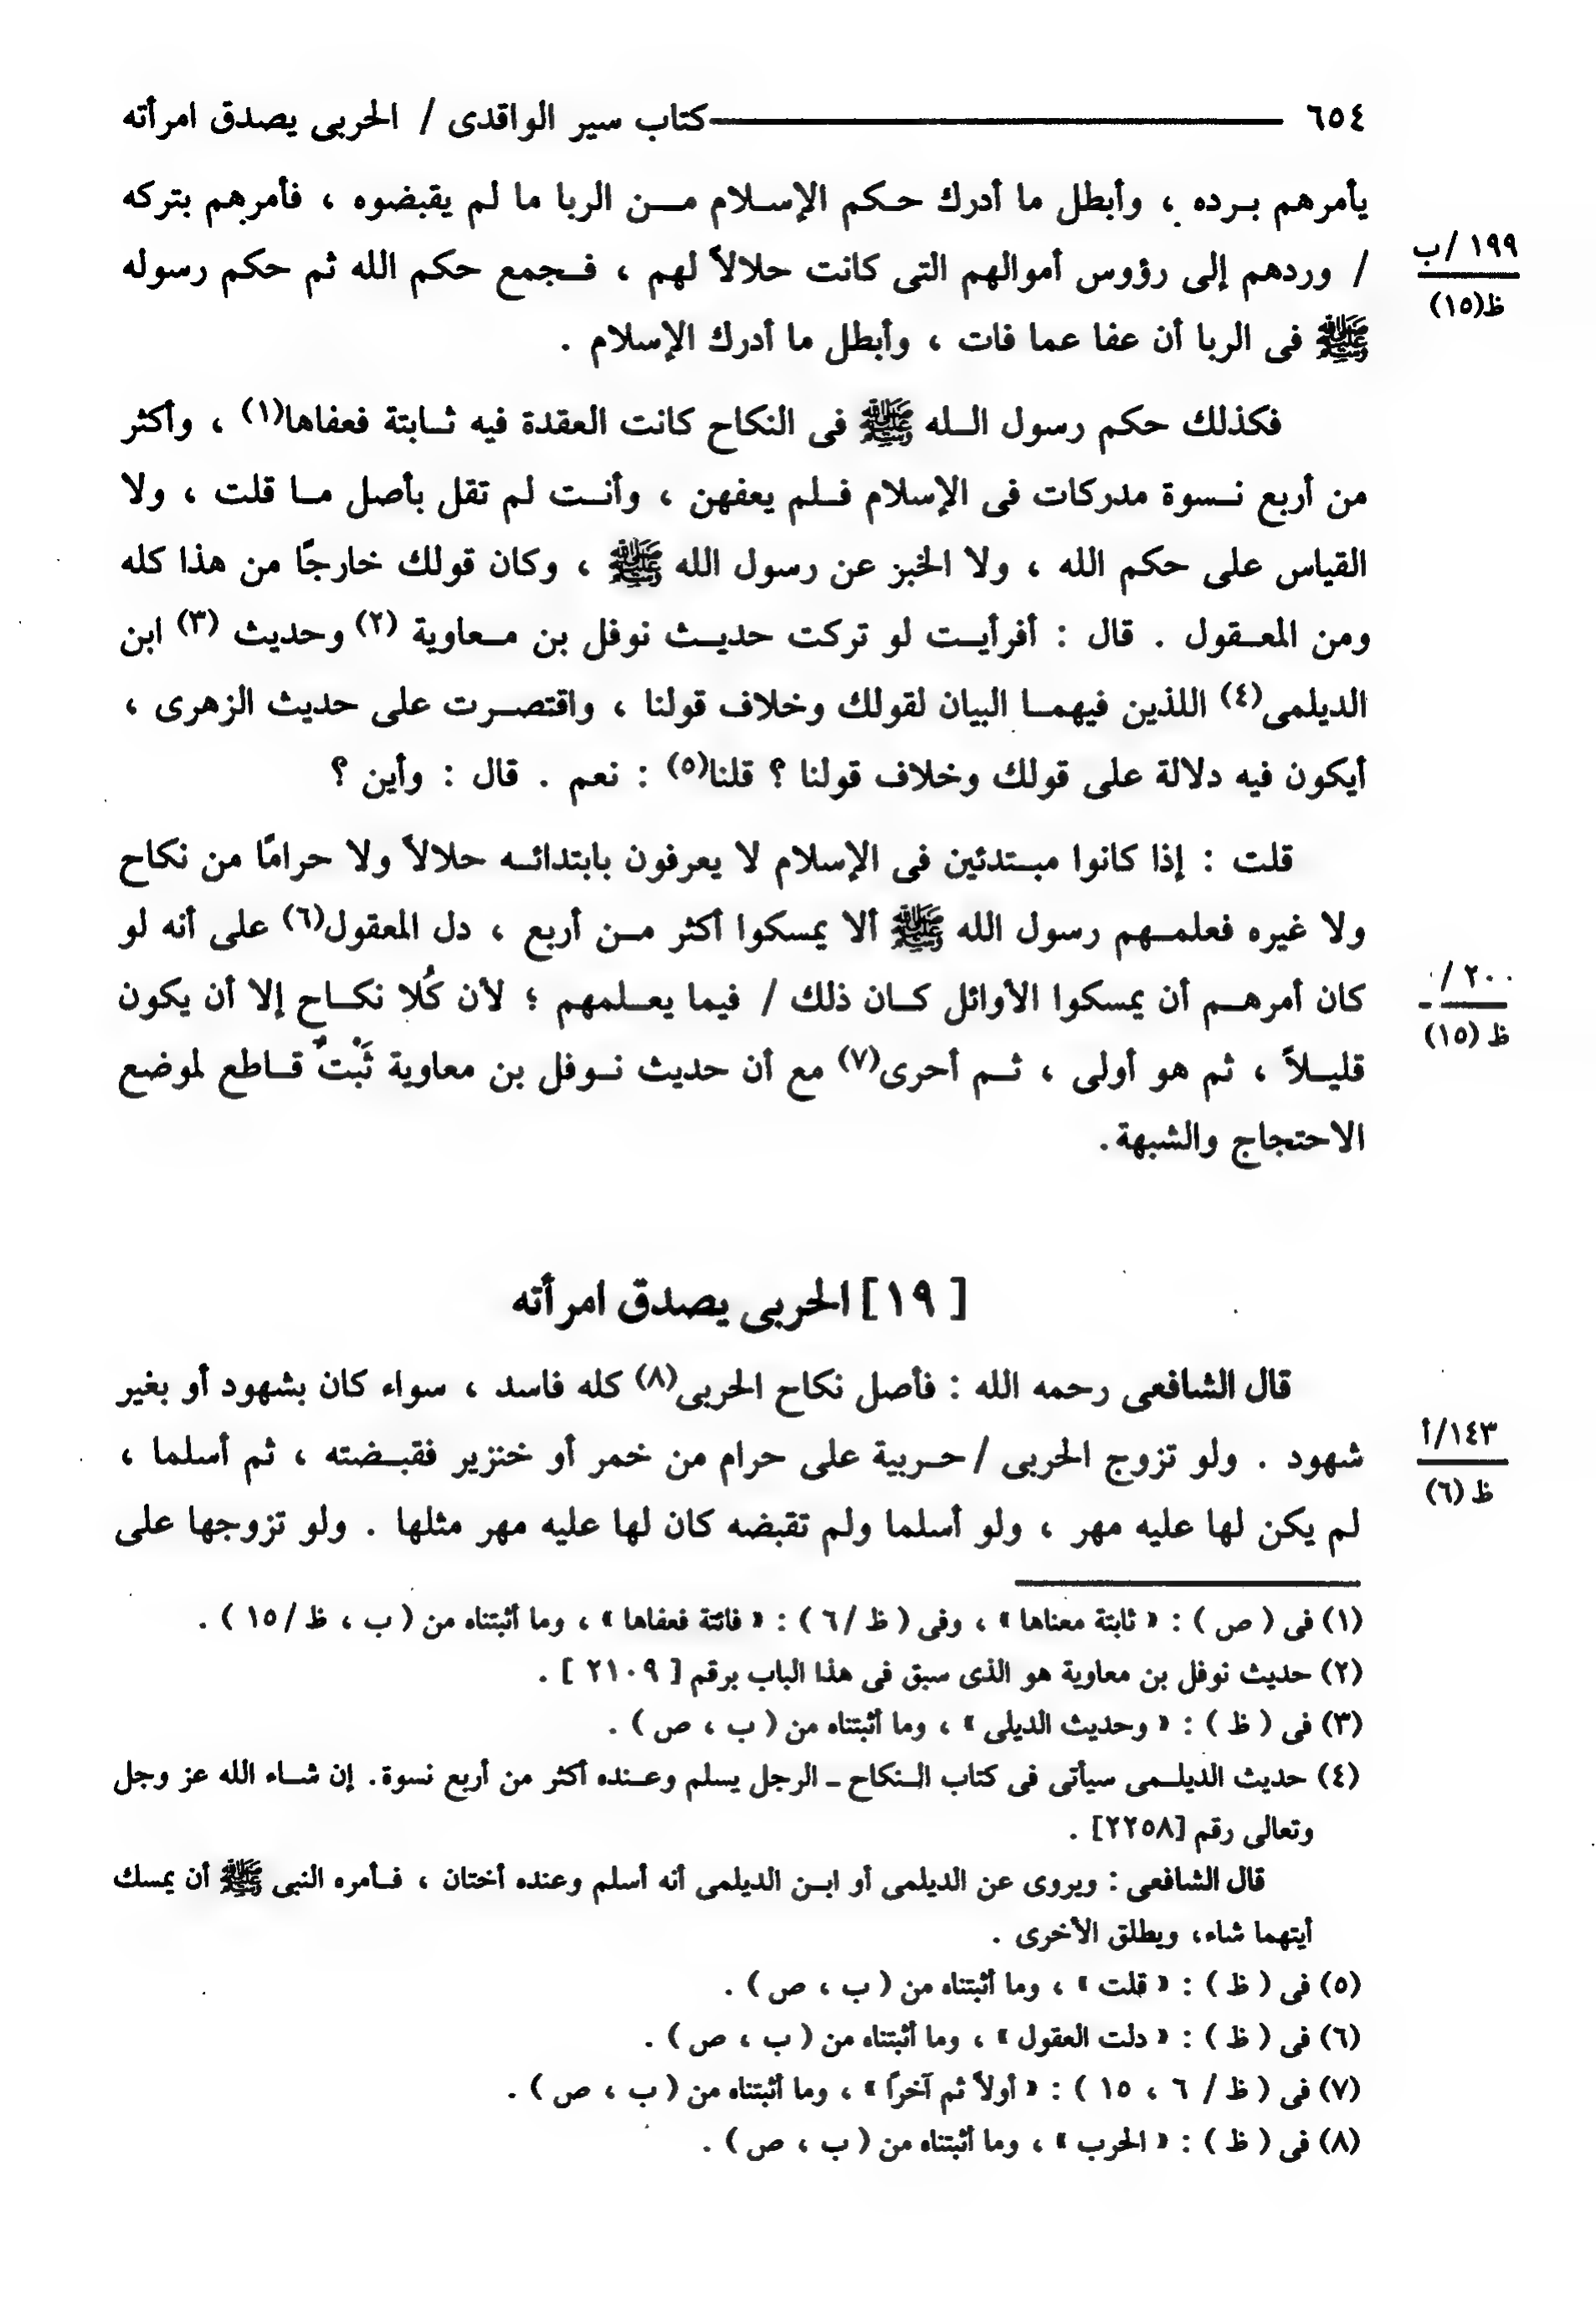 ٦٥٤ ــــــــ كتاب سير الواقدى / الحربى يصدق امرأته
يأمرهم برده ، وأبطل ما أدرك حكم الإسلام من الربا ما لم يقبضوه ، فأمرهم بتركه
١٩٩ /ب
ظ(١٥)
/ وردهم إلى رؤوس أموالهم التى كانت حلالاً لهم ، فجمع حكم الله ثم حكم رسوله
ﷺ فى الربا أن عفا عما فات ، وأبطل ما أدرك الإسلام .
فكذلك حكم رسول الله ﷺ فى النكاح كانت العقدة فيه ثابتة فعفاها(١) ، وأكثر
من أربع نسوة مدركات فى الإسلام فلم يعفهن ، وأنت لم تقل بأصل ما قلت ، ولا
القياس على حكم الله ، ولا الخبز عن رسول الله ﷺ ، وكان قولك خارجًا من هذا كله
ومن المعقول . قال : أفرأيت لو تركت حديث نوفل بن معاوية (٢) وحديث (٣) ابن
الديلمى(٤) اللذين فيهما البيان لقولك وخلاف قولنا ، واقتصرت على حديث الزهرى ،
أيكون فيه دلالة على قولك وخلاف قولنا ؟ قلنا(٥) : نعم . قال : وأين ؟
قلت : إذا كانوا مبتدئين فى الإسلام لا يعرفون بابتدائه حلالاً ولا حرامًا من نكاح
ولا غيره فعلمهم رسول الله ﷺ ألا يمسكوا أكثر من أربع ، دل المعقول(٦) على أنه لو
٢٠٠ /
ظ (١٥)
كان أمرهم أن يمسكوا الأوائل كان ذلك / فيما يعلمهم ؛ لأن كُلا نكاح إلا أن يكون
قليلاً ، ثم هو أولى ، ثم أحرى(٧) مع أن حديث نوفل بن معاوية ثَبْتٌ قاطع لموضع
الاحتجاج والشبهة.
[ ١٩] الحربى يصدق امرأته
قال الشافعى رحمه الله : فأصل نكاح الحربى(٨) كله فاسد ، سواء كان بشهود أو بغير
١٤٣/أ
ظ (٦)
شهود . ولو تزوج الحربى / حربية على حرام من خمر أو خنزير فقبضته ، ثم أسلما ،
لم يكن لها عليه مهر ، ولو أسلما ولم تقبضه كان لها عليه مهر مثلها . ولو تزوجها على
(١) فى ( ص ) : « ثابتة معناها » ، وفى ( ظ /٦ ) : « فائتة فعفاها » ، وما أثبتناه من ( ب ، ظ /١٥ ) .
(٢) حديث نوفل بن معاوية هو الذى سبق فى هذا الباب برقم [ ٢١٠٩ ] .
(٣) فى ( ظ ) : « وحديث الديلى » ، وما أثبتناه من ( ب ، ص ) .
(٤) حديث الديلمى سيأتى فى كتاب النكاح ـ الرجل يسلم وعنده أكثر من أربع نسوة. إن شاء الله عز وجل
وتعالى رقم [٢٢٥٨] .
قال الشافعى : ويروى عن الديلمى أو ابن الديلمى أنه أسلم وعنده أختان ، فأمره النبى ﷺ أن يمسك
أيتهما شاء، ويطلق الأخرى .
(٥) فى ( ظ ) : « قلت » ، وما أثبتناه من ( ب ، ص ) .
(٦) فى ( ظ ) : « دلت العقول » ، وما أثبتناه من ( ب ، ص ) .
(٧) فى ( ظ / ٦ ، ١٥ ) : « أولاً ثم آخرًا » ، وما أثبتناه من ( ب ، ص ) .
(٨) فى ( ظ ) : « الحرب » ، وما أثبتناه من ( ب ، ص ) .